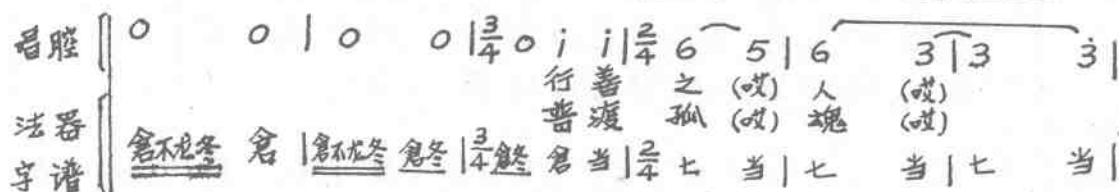 唱腔 0 0 | 0 0 | 3/4 0 i i | 2/4 6 5 | 6 3 | 3 3̇ |
行 善 之 (哎) 人 (哎)
普 渡 孤 (哎) 魂 (哎)
法器字谱 倉不龙冬 倉 | 倉不龙冬 倉冬 | 3/4 倉冬 倉 当 | 2/4 七 当 | 七 当 | 七 当 |